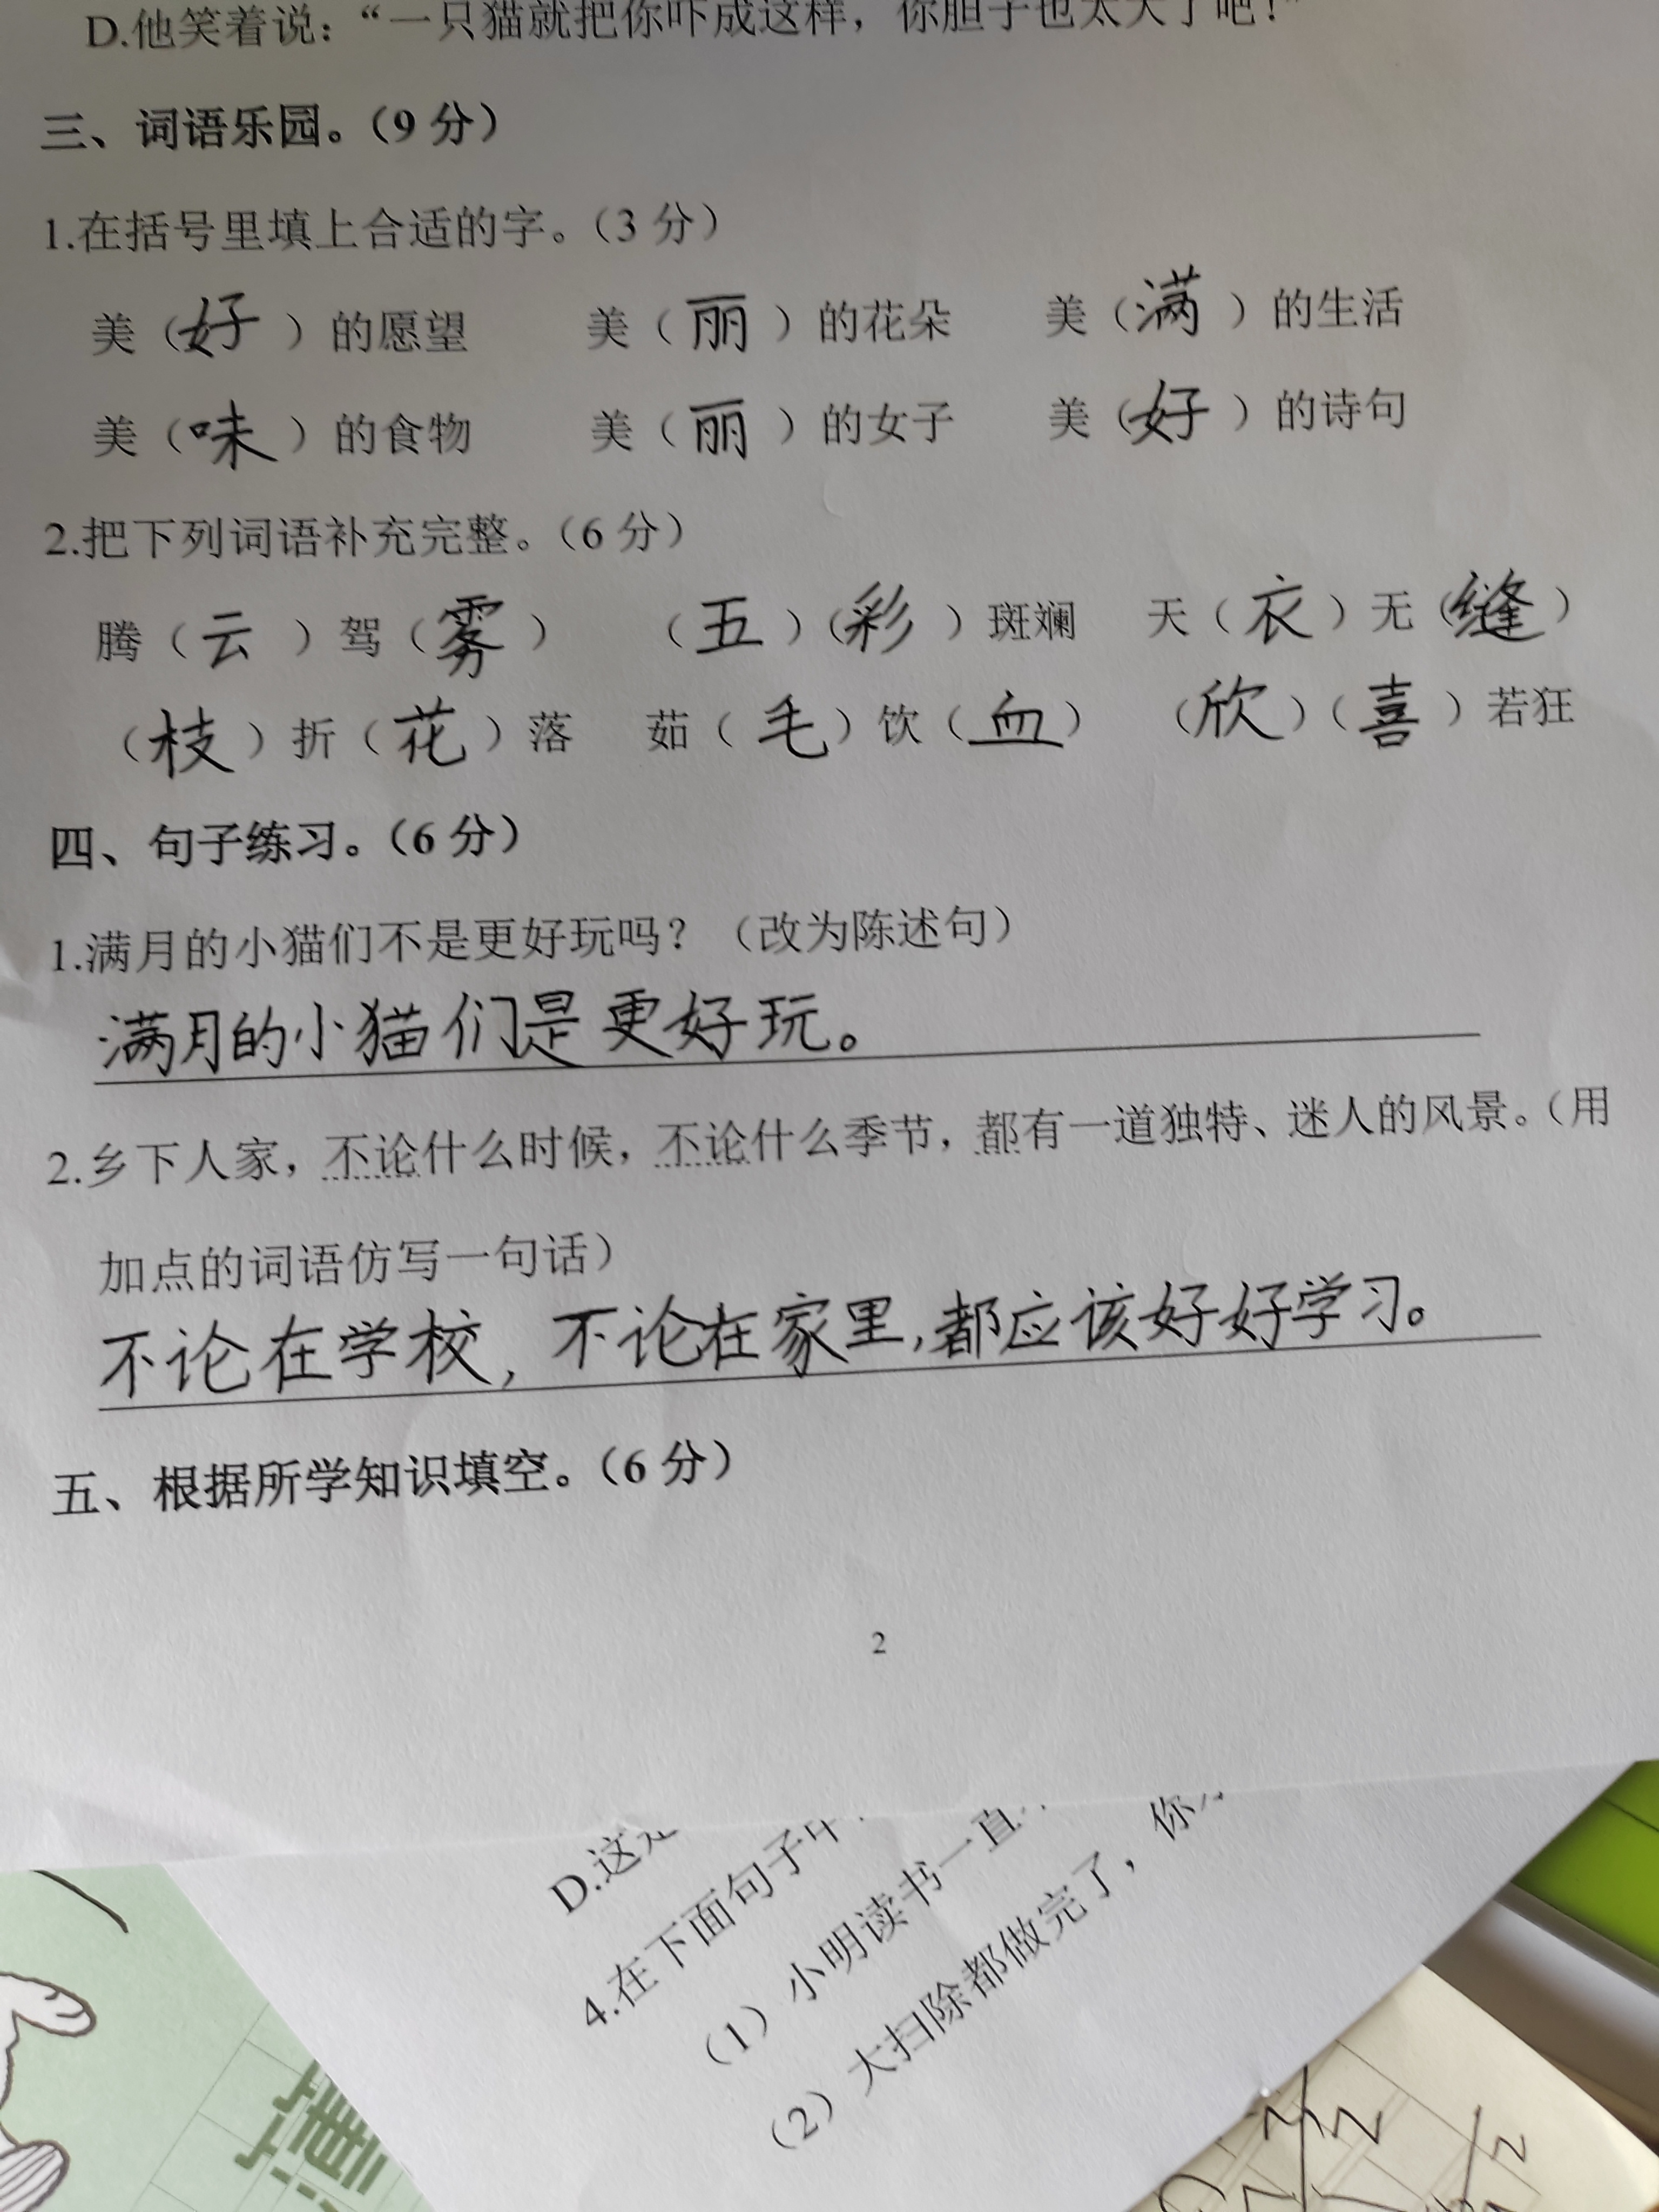 D.他笑着说：“一只猫就把你吓成这样，你胆子也太大了吧！”
三、词语乐园。（9 分）
1.在括号里填上合适的字。（3 分）
美（好）的愿望 美（丽）的花朵 美（满）的生活
美（味）的食物 美（丽）的女子 美（好）的诗句
2.把下列词语补充完整。（6 分）
腾（云）驾（雾） （五）（彩）斑斓 天（衣）无（缝）
（枝）折（花）落 茹（毛）饮（血） （欣）（喜）若狂
四、句子练习。（6 分）
1.满月的小猫们不是更好玩吗？（改为陈述句）
满月的小猫们是更好玩。
2.乡下人家，不论什么时候，不论什么季节，都有一道独特、迷人的风景。（用
加点的词语仿写一句话）
不论在学校，不论在家里，都应该好好学习。
五、根据所学知识填空。（6 分）
2
D.这是
4.在下面句子中
（1）小明读书一直
（2）大扫除都做完了，你